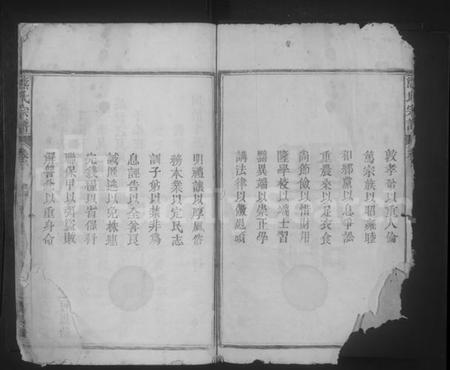 敦孝弟以重人倫
篤宗族以昭雍睦
和鄉黨以息爭訟
重農桑以足衣食
尚節儉以惜財用
隆學校以端士習
黜異端以崇正學
講法律以儆愚頑
明禮讓以厚風俗
務本業以定民志
訓子弟以禁非為
息誣告以全善良
誡匿逃以免株連
完錢糧以省催科
聯保甲以弭盜賊
解讐忿以重身命
氏宗譜